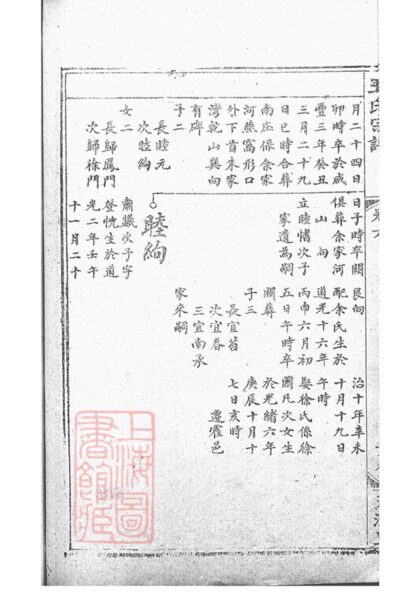 王氏宗譜
月二十四日
卯時卒於咸
豐三年癸丑
三月二十九
日巳時合葬
南庄保余家
河燕窩形口
外下首朱家
灣乾山巽向
有碑
子二
長睦元
次睦絢
女二
長歸鳳門
次歸徐門
日子時卒闕
俱葬余家河
山向
立睦愭次子
家遺為嗣
睦絢
肅職次子字
登恍生於道
光二年壬午
十一月二十
艮向
配余氏生於
道光十六年
丙申六月初
五日午時卒
闕葬
子三
長宜苔
次宜春
三宜南承
家來嗣
治十年辛未
十月十九日
午時
娶徐氏係徐
國凡次女生
於光緒六年
庚辰十月十
七日亥時
遷霍邑
上海圖
書館藏